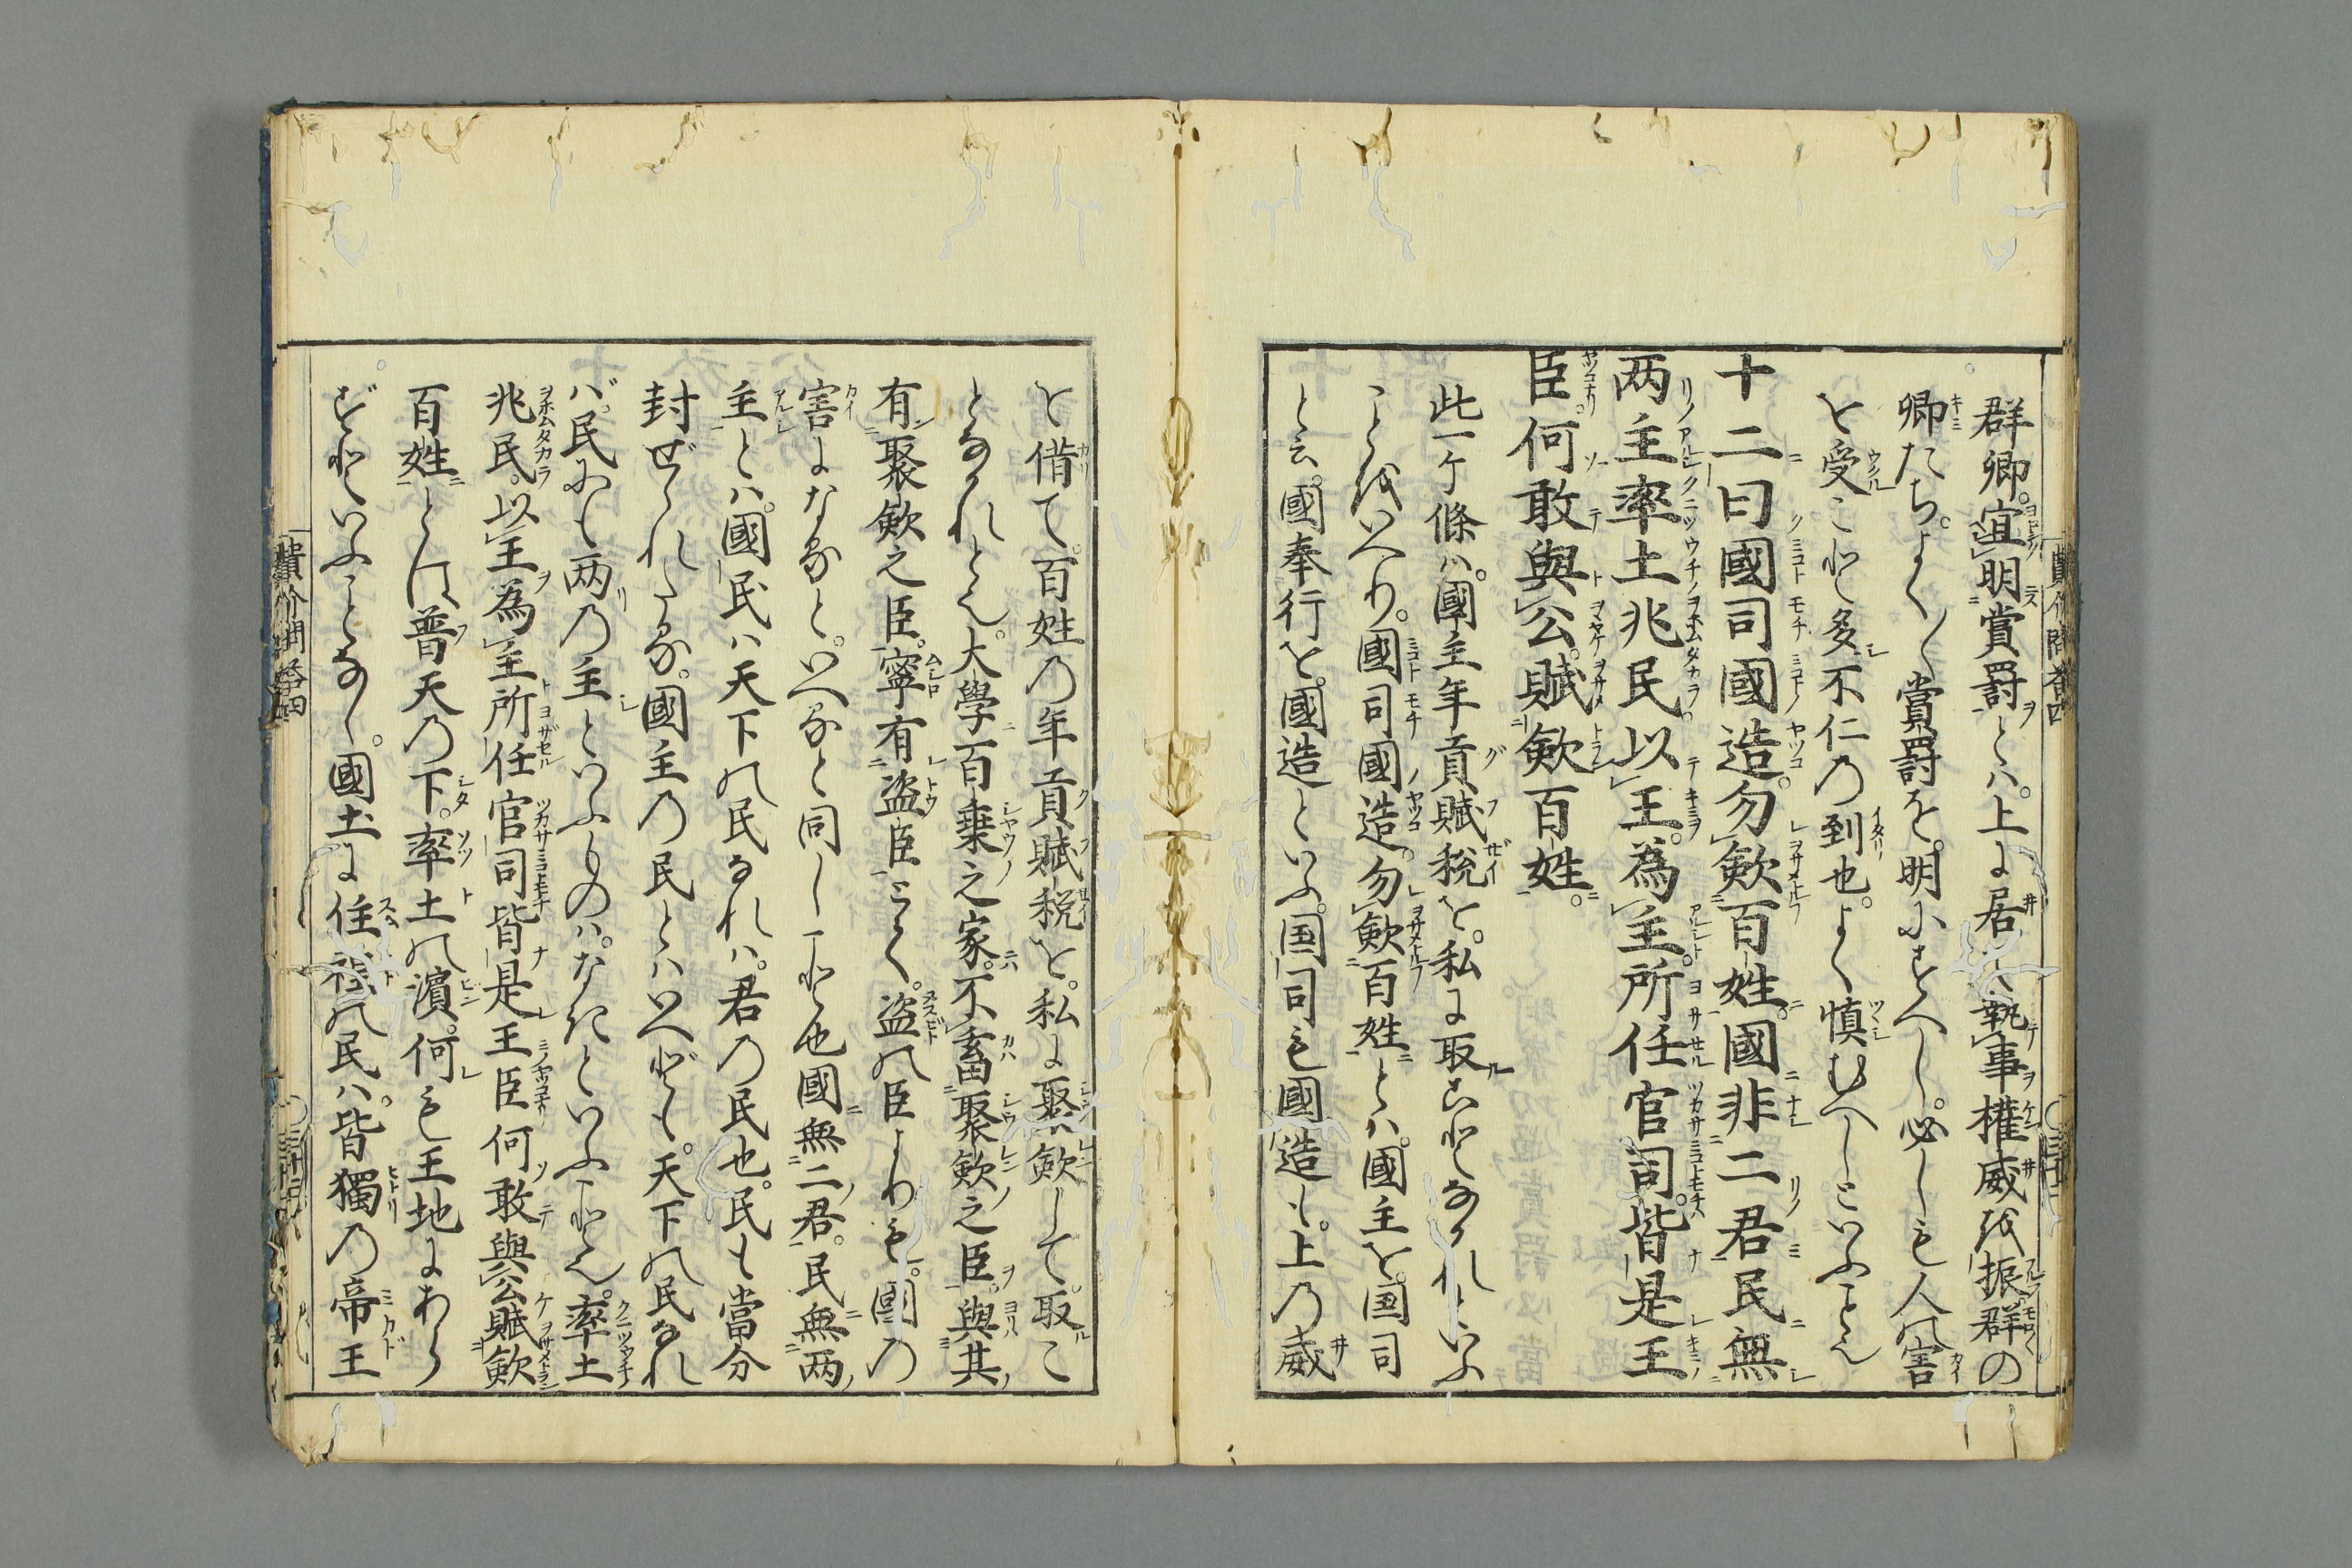 群卿。宜明賞罰とハ。上に居て執事權威を振群の
卿たち。よく〳〵賞罰を。明にすへし。必しも人の害
を受こと多不仁の到也。よく慎むへしといふこと也
十二曰國司國造。勿歛百姓。國非二君民無
两主率土兆民。以王。為主。所任官司。皆是王
臣。何敢與公。賦歛百姓。
此一ケ條ハ。國主年貢賦税を。私に取ることなかれといふ
ことをいへり。國司國造。勿歛百姓とハ。國主を。国司
と云。國奉行を。國造といふ。国司も國造も。上の威
を借て。百姓の年貢賦税を。私に聚歛して。取こ
となかれと也。大學百乗之家。不畜聚歛之臣。與其
有聚歛之臣。寧有盗臣とく。盗の臣よりも。國の
害になると。いへると同し事也國無二君。民無两
主とハ。國民ハ天下の民なれハ。君の民也。民も當分
封ぜられたる。國主の民とハいへども。天下の民なれ
バ。民にも两の主といふものハ。なきといふ事也。率土
兆民。以王為主所任官司皆是王臣何敢與公賦歛
百姓とは普天の下。率土の濱。何も王地にあら
ずといふことなし。國土に住程の民ハ。皆獨の帝王